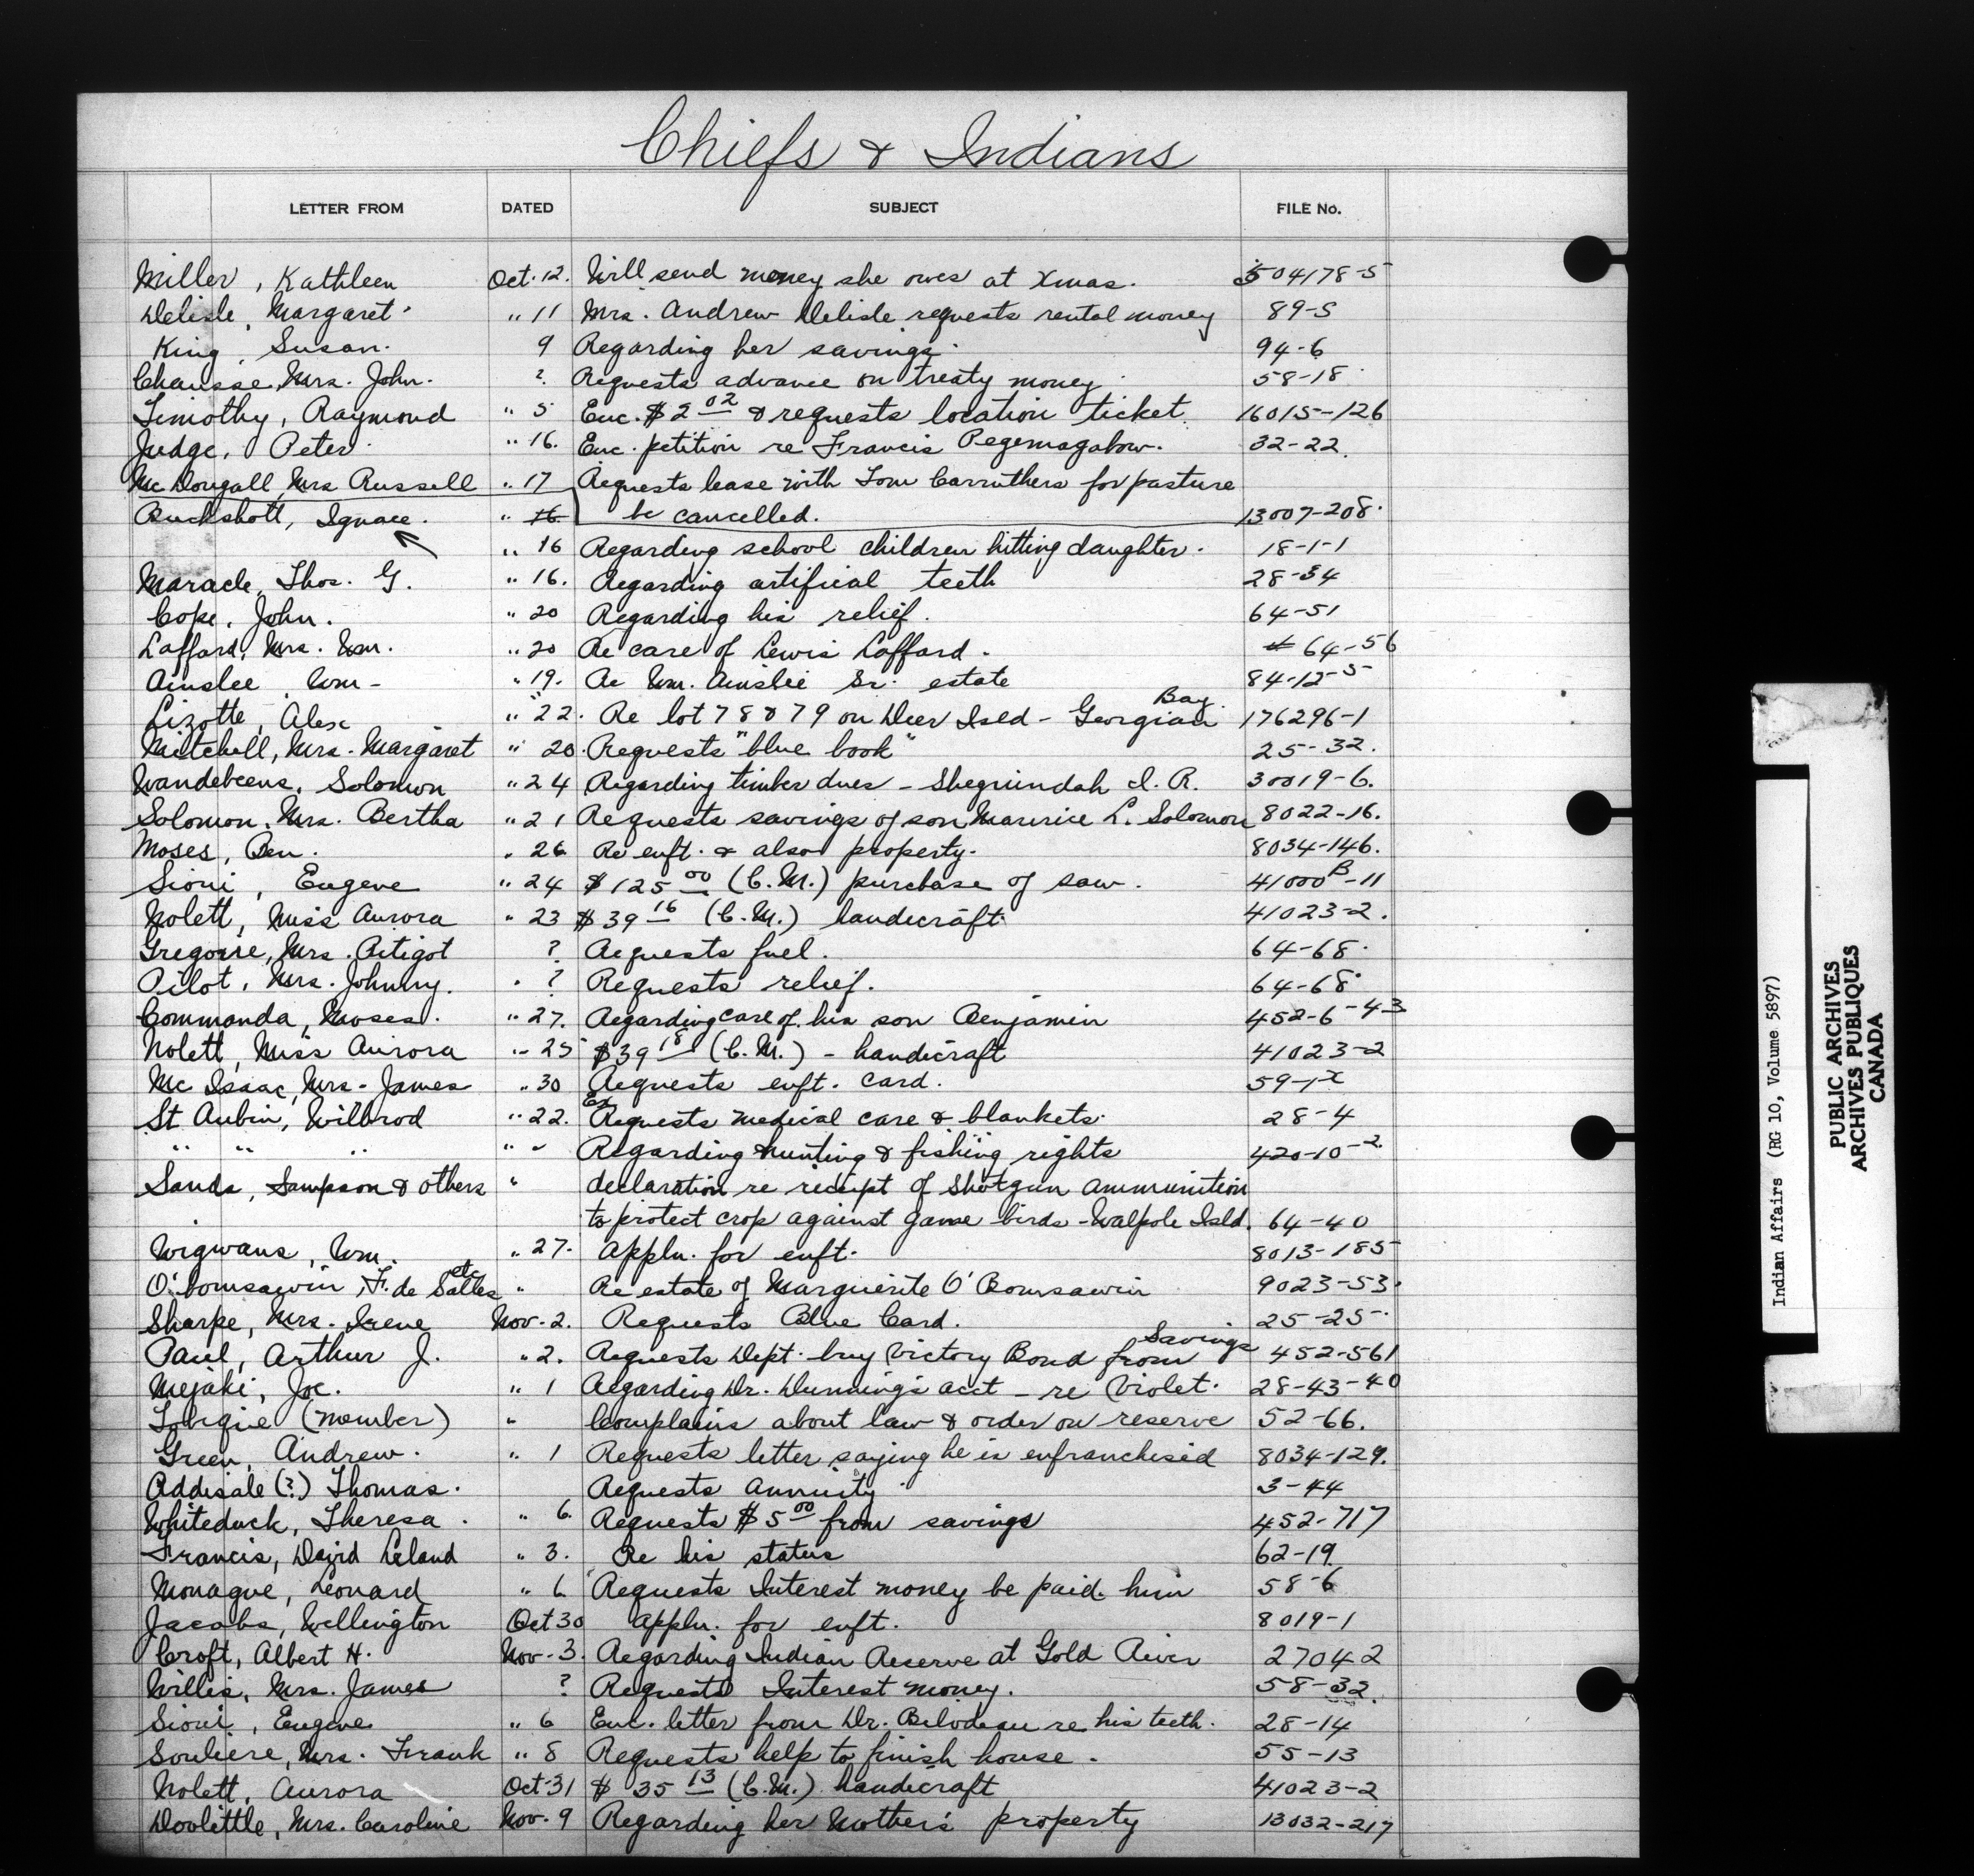 Chiefs & Indians
LETTER FROM DATED SUBJECT FILE No.
Miller, Kathleen Oct. 12. Will send money she owes at Xmas. 504178-5
Delisle, Margaret " 11 Mrs. Andrew Delisle requests rental money 89-5
King, Susan. 9 Regarding her savings. 94-6
Chausse, Mrs. John. ? Requests advance on treaty money. 58-18
Timothy, Raymond " 5 Enc. $2 02 & requests location ticket. 16015-126
Judge, Peter " 16. Enc. petition re Francis Pegemagabow. 32-22.
McDougall, Mrs Russell " 17 Requests lease with Tom Carruthers for pasture
Buckshott, Ignace. " 16 be cancelled. 13007-208.
" 16 Regarding school children hitting daughter. 18-1-1
Maracle, Thos. G. " 16. Regarding artifical teeth 28-34
Cope, John. " 20 Regarding his relief. 64-51
Laffard, Mrs. Wm. " 20 Re care of Lewis Laffard. 64-56
Ainslee, Wm- " 19. Re Wm. Ainslie Sr. estate 84-12-5
Lizotte, Alex " 22. Re lot 78 & 79 on Deer Isld - Georgian Bay. 176296-1
Mitchell, Mrs. Margaret " 20. Requests "blue book" 25-32.
Wandebeens, Solomon " 24 Regarding timber dues - Sheguindah I. R. 30019-6.
Solomon, Mrs. Bertha " 21 Requests savings of son Maurice L. Solomon 8022-16.
Moses, Ben. " 26 Re enft. & also property. 8034-146.
Sioui, Eugene " 24 $125 00 (C.M.) purchase of saw. 41000 B-11
Nolett, Miss Aurora " 23 $39 16 (C.M.) handicraft 41023-2.
Gregoire, Mrs. Petigot ? Requests fuel. 64-68.
Pilot, Mrs. Johnny. " ? Requests relief. 64-68
Commonda, Moses. " 27. Regarding care of his son Benjamin 452-6-43
Nolett, Miss Aurora " 25 $39 18 (C.M.) - handicraft 41023-2
Mc Isaac, Mrs. James " 30 Requests enft. card. 59-1
St Aubin, Wilbrod " 22. Requests medical care & blankets. 28-4
" " " " " Regarding hunting & fishing rights 420-10-2
Sands, Sampson & others " declaration re receipt of Shotgun ammunition
to protect crop against game birds - Walpole Isld. 64-40
Wigwans, Wm. " 27. Appln. for enft. 8013-185
O'bomsawin, F. de Salles etc " Re estate of Marguerite O'Bomsawin 9023-53.
Sharpe, Mrs. Irene Nov. 2. Requests Blue Card. 25-25.
Paul, Arthur J. " 2. Requests Dept. buy Victory Bond from Savings 452-561
Mejaki, Joe. " 1 Regarding Dr. Dunning's acct - re Violet. 28-43-40
Tobique (member) " Complains about law & order on reserve 52-66.
Green, Andrew. " 1 Requests letter saying he is enfranchised 8034-129.
Addisale (?) Thomas. Requests annuity 3-44
Whiteduck, Theresa. " 6. Requests $5 00 from savings 452-717
Francis, David Leland " 3. Re his status 62-19.
Monague, Leonard " 6 Requests Interest money be paid him 58-6
Jacobs, Wellington Oct 30 Appln. for enft. 8019-1
Croft, Albert H. Nov. 3. Regarding Indian Reserve at Gold River 27042
Willis, Mrs. James ? Requests Interest money. 58-32.
Sioui, Eugene " 6 Enc. letter from Dr. Bilodeau re his teeth. 28-14
Souliere, Mrs. Frank " 8 Requests help to finish house. 55-13
Nolett, Aurora Oct. 31 $ 35 13 (C.M.) handicraft 41023-2
Doolittle, Mrs. Caroline Nov. 9 Regarding her Mother's property 13032-217
Indian Affairs (RG 10, Volume 5897)
PUBLIC ARCHIVES
ARCHIVES PUBLIQUES
CANADA